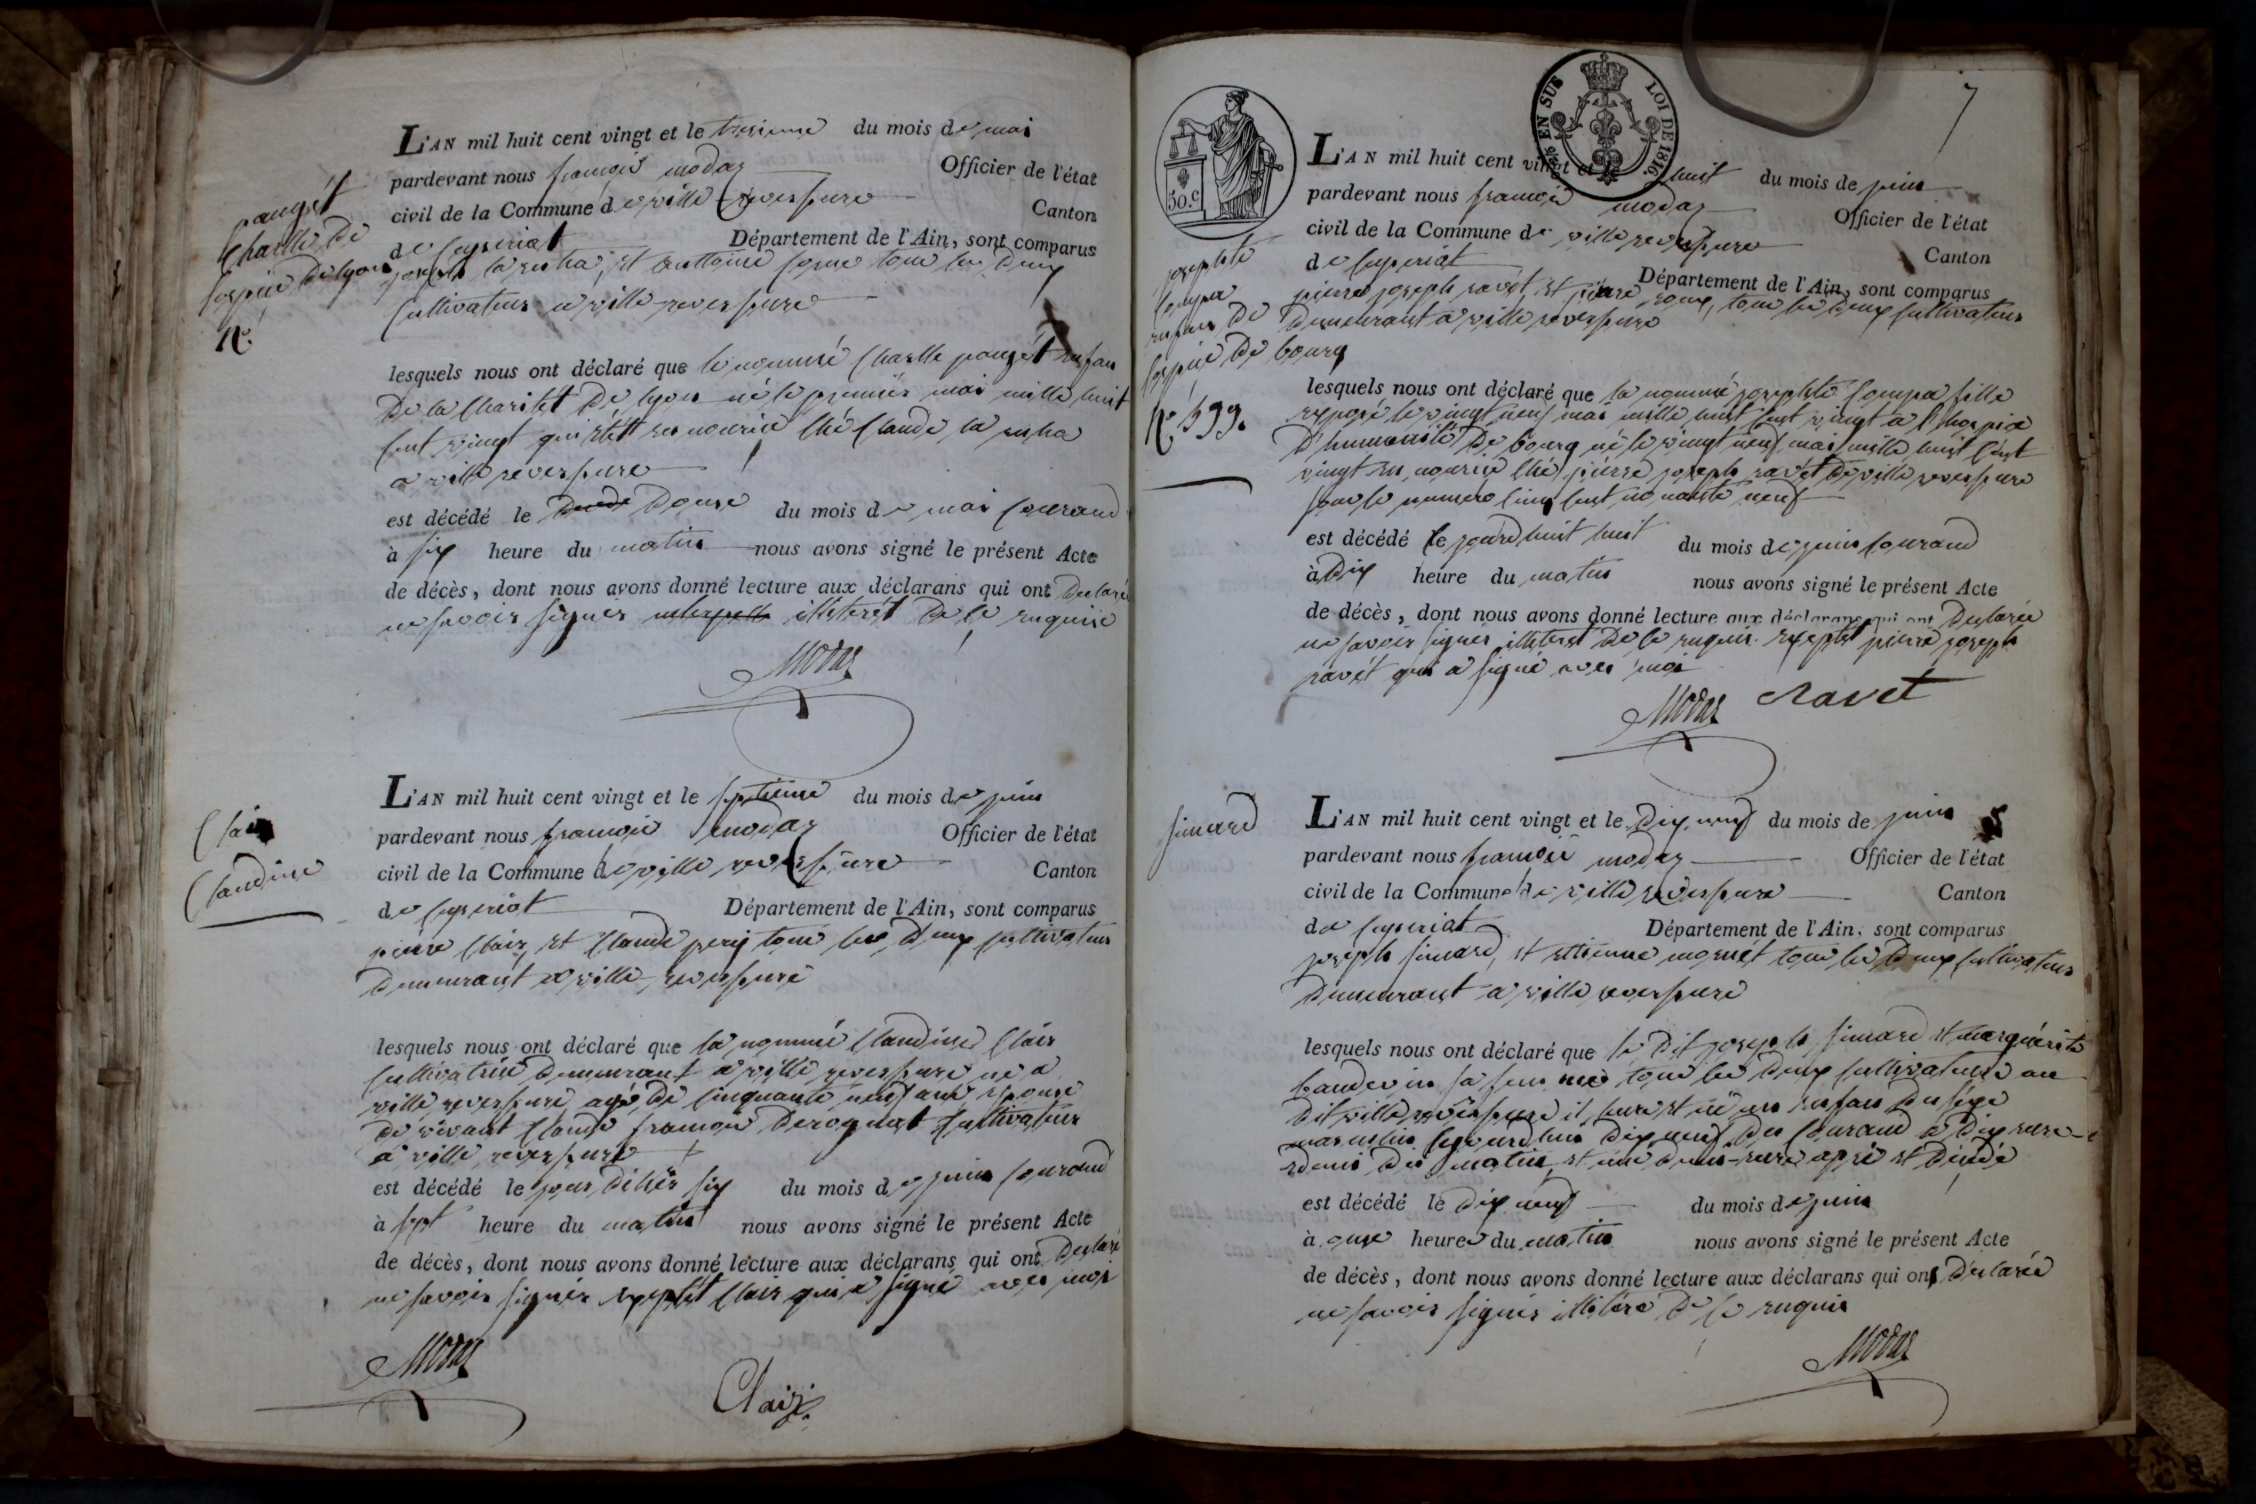 pougét
Charlle De
hospice De lyon
N.o
L'AN mil huit cent vingt et le tresieme du mois de mai
pardevant nous françois modaz Officier de l'état
civil de la Commune de ville reversure Canton
de Ceyseriat Département de l'Ain, sont comparus
joseph et antoine tout les Deux
Cultivateur a ville reversure
lesquels nous ont déclaré que le nommé Charlle pougét enfan
De la Charitét De lyon né le premier mai mille huit
Cent vingt qui étét en nourice Ché Claude
a ville reversure
est décédé le Douse du mois de mai Courand
à six heure du matin nous avons signé le présent Acte
de décès, dont nous avons donné lecture aux déclarans qui ont Declarée
ne savoir signer illeterét De ce enquise
Modaz
Clair
Claudine
L'AN mil huit cent vingt et le septieme du mois de juin
pardevant nous françois modaz Officier de l'état
civil de la Commune de ville reversure Canton
de Ceyseriat Département de l'Ain, sont comparus
pierre Clair, et Claude tout les Deux Cultivateur
Demeurant a ville reversure
lesquels nous ont déclaré que la nommé Claudine Clair
Cultivatrice Demeurant a ville reversure né a
ville reversure agé De Cinquante neuf ans epouse
De vivant Claude françois Derognat Cultivateur
a ville reversure
est décédé le jour Dihier six du mois de juin Courand
à sept heure du matin nous avons signé le présent Acte
de décès, dont nous avons donné lecture aux déclarans qui ont Declaré
ne savoir signér exeptét Clair qui a signé avec moi
Modaz
Clair
7
50. c
EN SUS LOI DE 1816.
josephte
Compa
enfan De
hospice De bourg
N.o 599.
L'AN mil huit cent vingt et le huit du mois de juin
pardevant nous françois modaz Officier de l'état
civil de la Commune de ville reversure Canton
de Ceyseriat Département de l'Ain, sont comparus
pierre joseph ravét et pierre roux, tout les Deux Cultivateur
Demeurant a ville reversure
lesquels nous ont déclaré que la nommé josephte Compa fille
exposé le vingt neuf mai mille huit Cent vingt a l'hospice
D'humanité De bourg né le vingt neuf mai mille huit Cent
vingt en nourice Ché pierre joseph ravét De ville reversure
sous le numero Cinq Cent nonante neuf
est décédé le jourdhuit huit du mois de juin Courand
à Dix heure du matin nous avons signé le présent Acte
de décès, dont nous avons donné lecture aux déclarans qui ont Declarée
ne savoir signer illeteret De ce enquis exeptét pierre joseph
ravét qui a signé avec moi
Modaz Ravet
simard
L'AN mil huit cent vingt et le Dix neuf du mois de juin
pardevant nous françois modaz Officier de l'état
civil de la Commune de ville reversure Canton
de Ceyseriat Département de l'Ain, sont comparus
joseph simard, et ettienne mornét tout les Deux Cultivateur
Demeurant a ville reversure
lesquels nous ont déclaré que le Dit joseph simard et marguérite
baudevin sa femme tout les Deux Cultivateur au
Dit ville reversure il leure et né un enfan Du sexe
masculin le jourdhui Dix neuf Du Courand a Dix eure
edemi Du matin, et une Demi eure aprè et Décédé
est décédé le Dix neuf du mois de juin
à onse heure du matin nous avons signé le présent Acte
de décès, dont nous avons donné lecture aux déclarans qui ont Declarée
ne savoir signér illitéré De ce enquis
Modaz